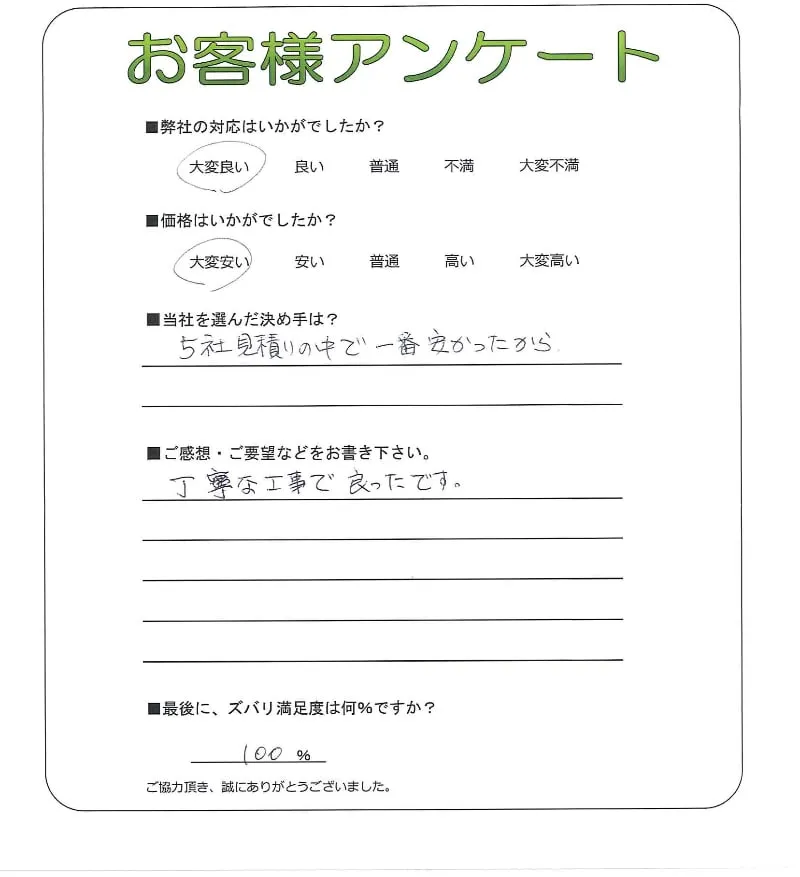 お客様アンケート
■弊社の対応はいかがでしたか？
大変良い 良い 普通 不満 大変不満
■価格はいかがでしたか？
大変安い 安い 普通 高い 大変高い
■当社を選んだ決め手は？
5社見積りの中で一番安かったから
■ご感想・ご要望などをお書き下さい。
丁寧な工事で良ったです。
■最後に、ズバリ満足度は何％ですか？
100 %
ご協力頂き、誠にありがとうございました。